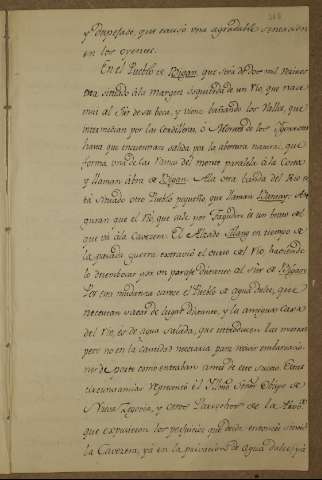 yOmpesado, que causó una agradable sensacion
en los oyentes.
En el Pueblo de Bigan, que será de dos mil vecinos
situado á la margen izquierda de un Rio, que nace
mui al Sur de su boca, y viene bañando los Valles, que
intermedian por las Cordilleras, ó Montes de los Igorrotes
hasta que encuentran salida por la abertura natural que
forma una de las Ramas del monte paralela á la Costa
y llaman Abra de Bigan. A la otra banda del Rio es
tá situado otro Pueblo pequeño que llaman Bantay. Ase
guran que el Rio que sale por Tagudin es un brazo del
que va á la Cavezera. El Alzado Silang en tiempo de
la pasada guerra extravió el curso del Rio, haciendo
lo desembocar por un parage distante al Sur de Bigan.
Por esta mudanza carece el Pueblo de agua dulce, que
necesitan sacar de lugar distante, y la antigua Caxa
del Rio, es de agua salada, que introducen las mareas
pero no en la cantidad necesaria para recivir embarcacio
nes de porte como entraban antes de este suceso. Estas
circunstancias representó el Illmo Señor Obispo de
Nueva Segovia, y otros Parrochos de la Prov.ª
que expusieron los perjuicios que desde entonces
la Cavezera, ya en la privacion de agua dulce, ya